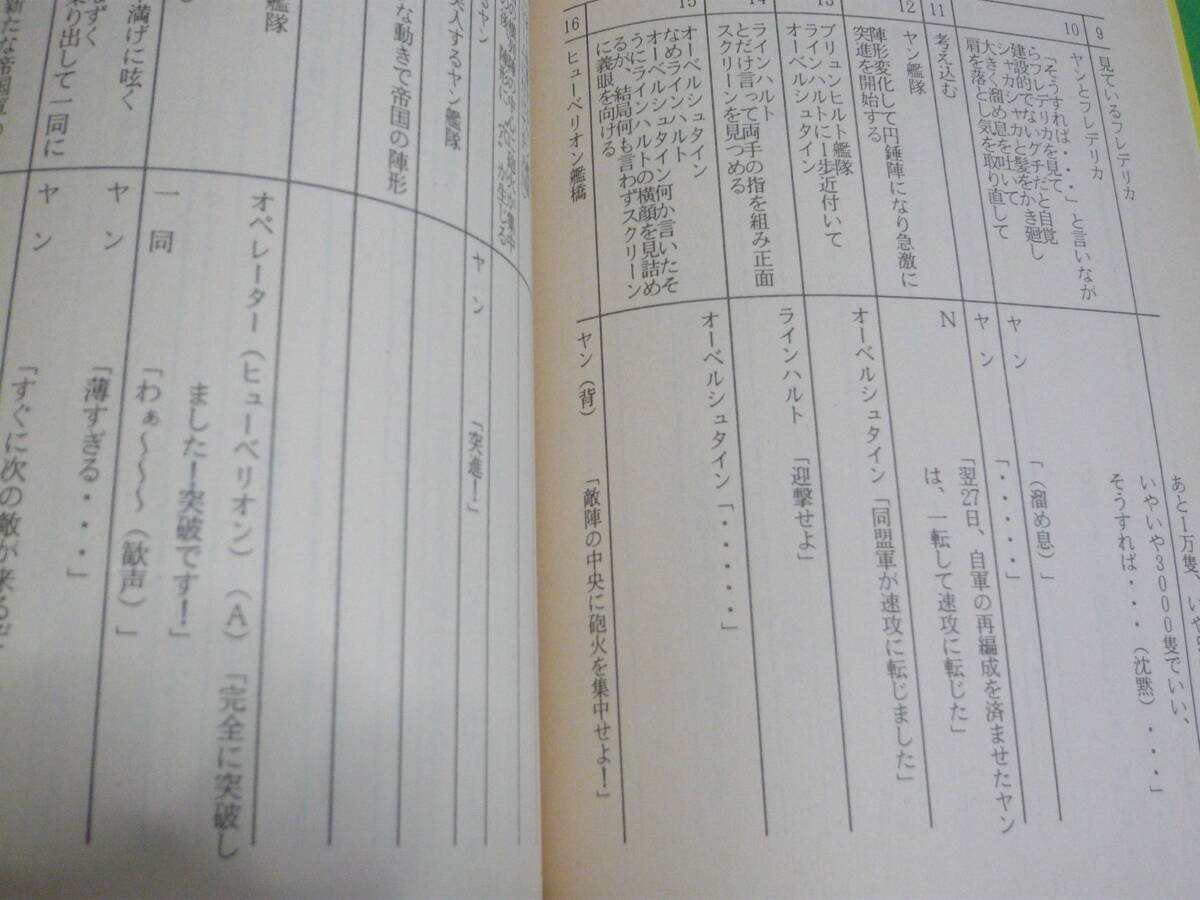 9
見ているフレデリカ
あと1万隻、いや
いやいや3000隻でいい、
そうすれば・・・(沈黙)・・・」
10
ヤンとフレデリカ
「そうすれば・・・」と言いなが
らフレデリカを見て、
建設的でないグチだと自覚し
シャカシャカと髪をかき廻し
大きく溜め息を吐いて
肩を落とし気を取り直して
ヤン
「(溜め息)」
11
考え込む
ヤン
「・・・・・」
12
ヤン艦隊
陣形変化して円錐陣になり急激に
突進を開始する
N
「翌27日、自軍の再編成を済ませたヤン
は、一転して速攻に転じた」
13
ブリュンヒルト艦隊
ラインハルトに1歩近付いて
オーベルシュタイン
オーベルシュタイン
「同盟軍が速攻に転じました」
14
ラインハルト
とだけ言って両手の指を組み正面
スクリーンを見つめる
ラインハルト
「迎撃せよ」
15
オーベルシュタイン
なめラインハルト
オーベルシュタイン何か言いたそ
うにラインハルトの横顔を見詰め
るが、結局何も言わずスクリーン
に義眼を向ける
オーベルシュタイン
「・・・・・」
16
ヒューベリオン艦橋
ヤン(背)
「敵陣の中央に砲火を集中せよ!」
ヤン
「突進!」
突入するヤン艦隊
な動きで帝国の陣形
艦隊
オペレーター(ヒューベリオン)(A)
「完全に突破し
ました!突破です!」
一同
「わぁ〜〜〜(歓声)」
満げに呟く
ヤン
「薄すぎる・・・」
なずく
乗り出して一同に
ヤン
「すぐに次の敵が来るぞ